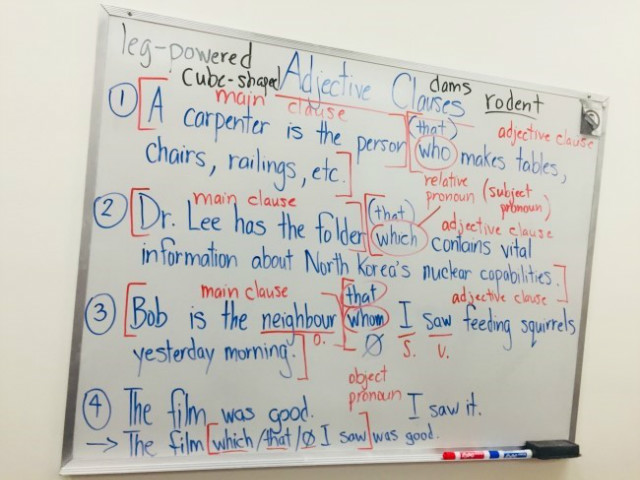 leg-powered
cube-shaped
Adjective Clauses
dams rodent
main clause
adjective clause
① [A carpenter is the person] [(that) who makes tables,
chairs, railings, etc.]
relative pronoun (subject pronoun)
main clause
adjective clause
② [Dr. Lee has the folder] [(that) which contains vital
information about North Korea's nuclear capabilities.]
main clause
adjective clause
③ [Bob is the neighbour] [that whom Ø I saw feeding squirrels
o. s. v.
yesterday morning.]
object pronoun
④ The film was good. I saw it.
→ The film [which/that/Ø I saw] was good.